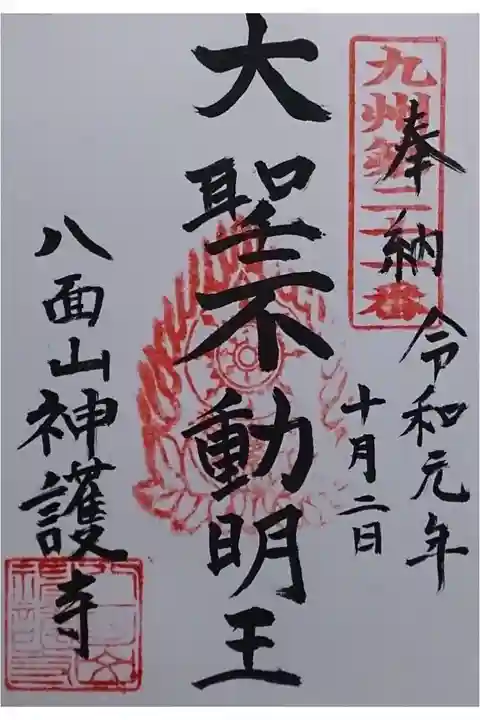 九州第二十
番
奉納
令和元年
十月二日
大聖不動明王
八面山神護寺